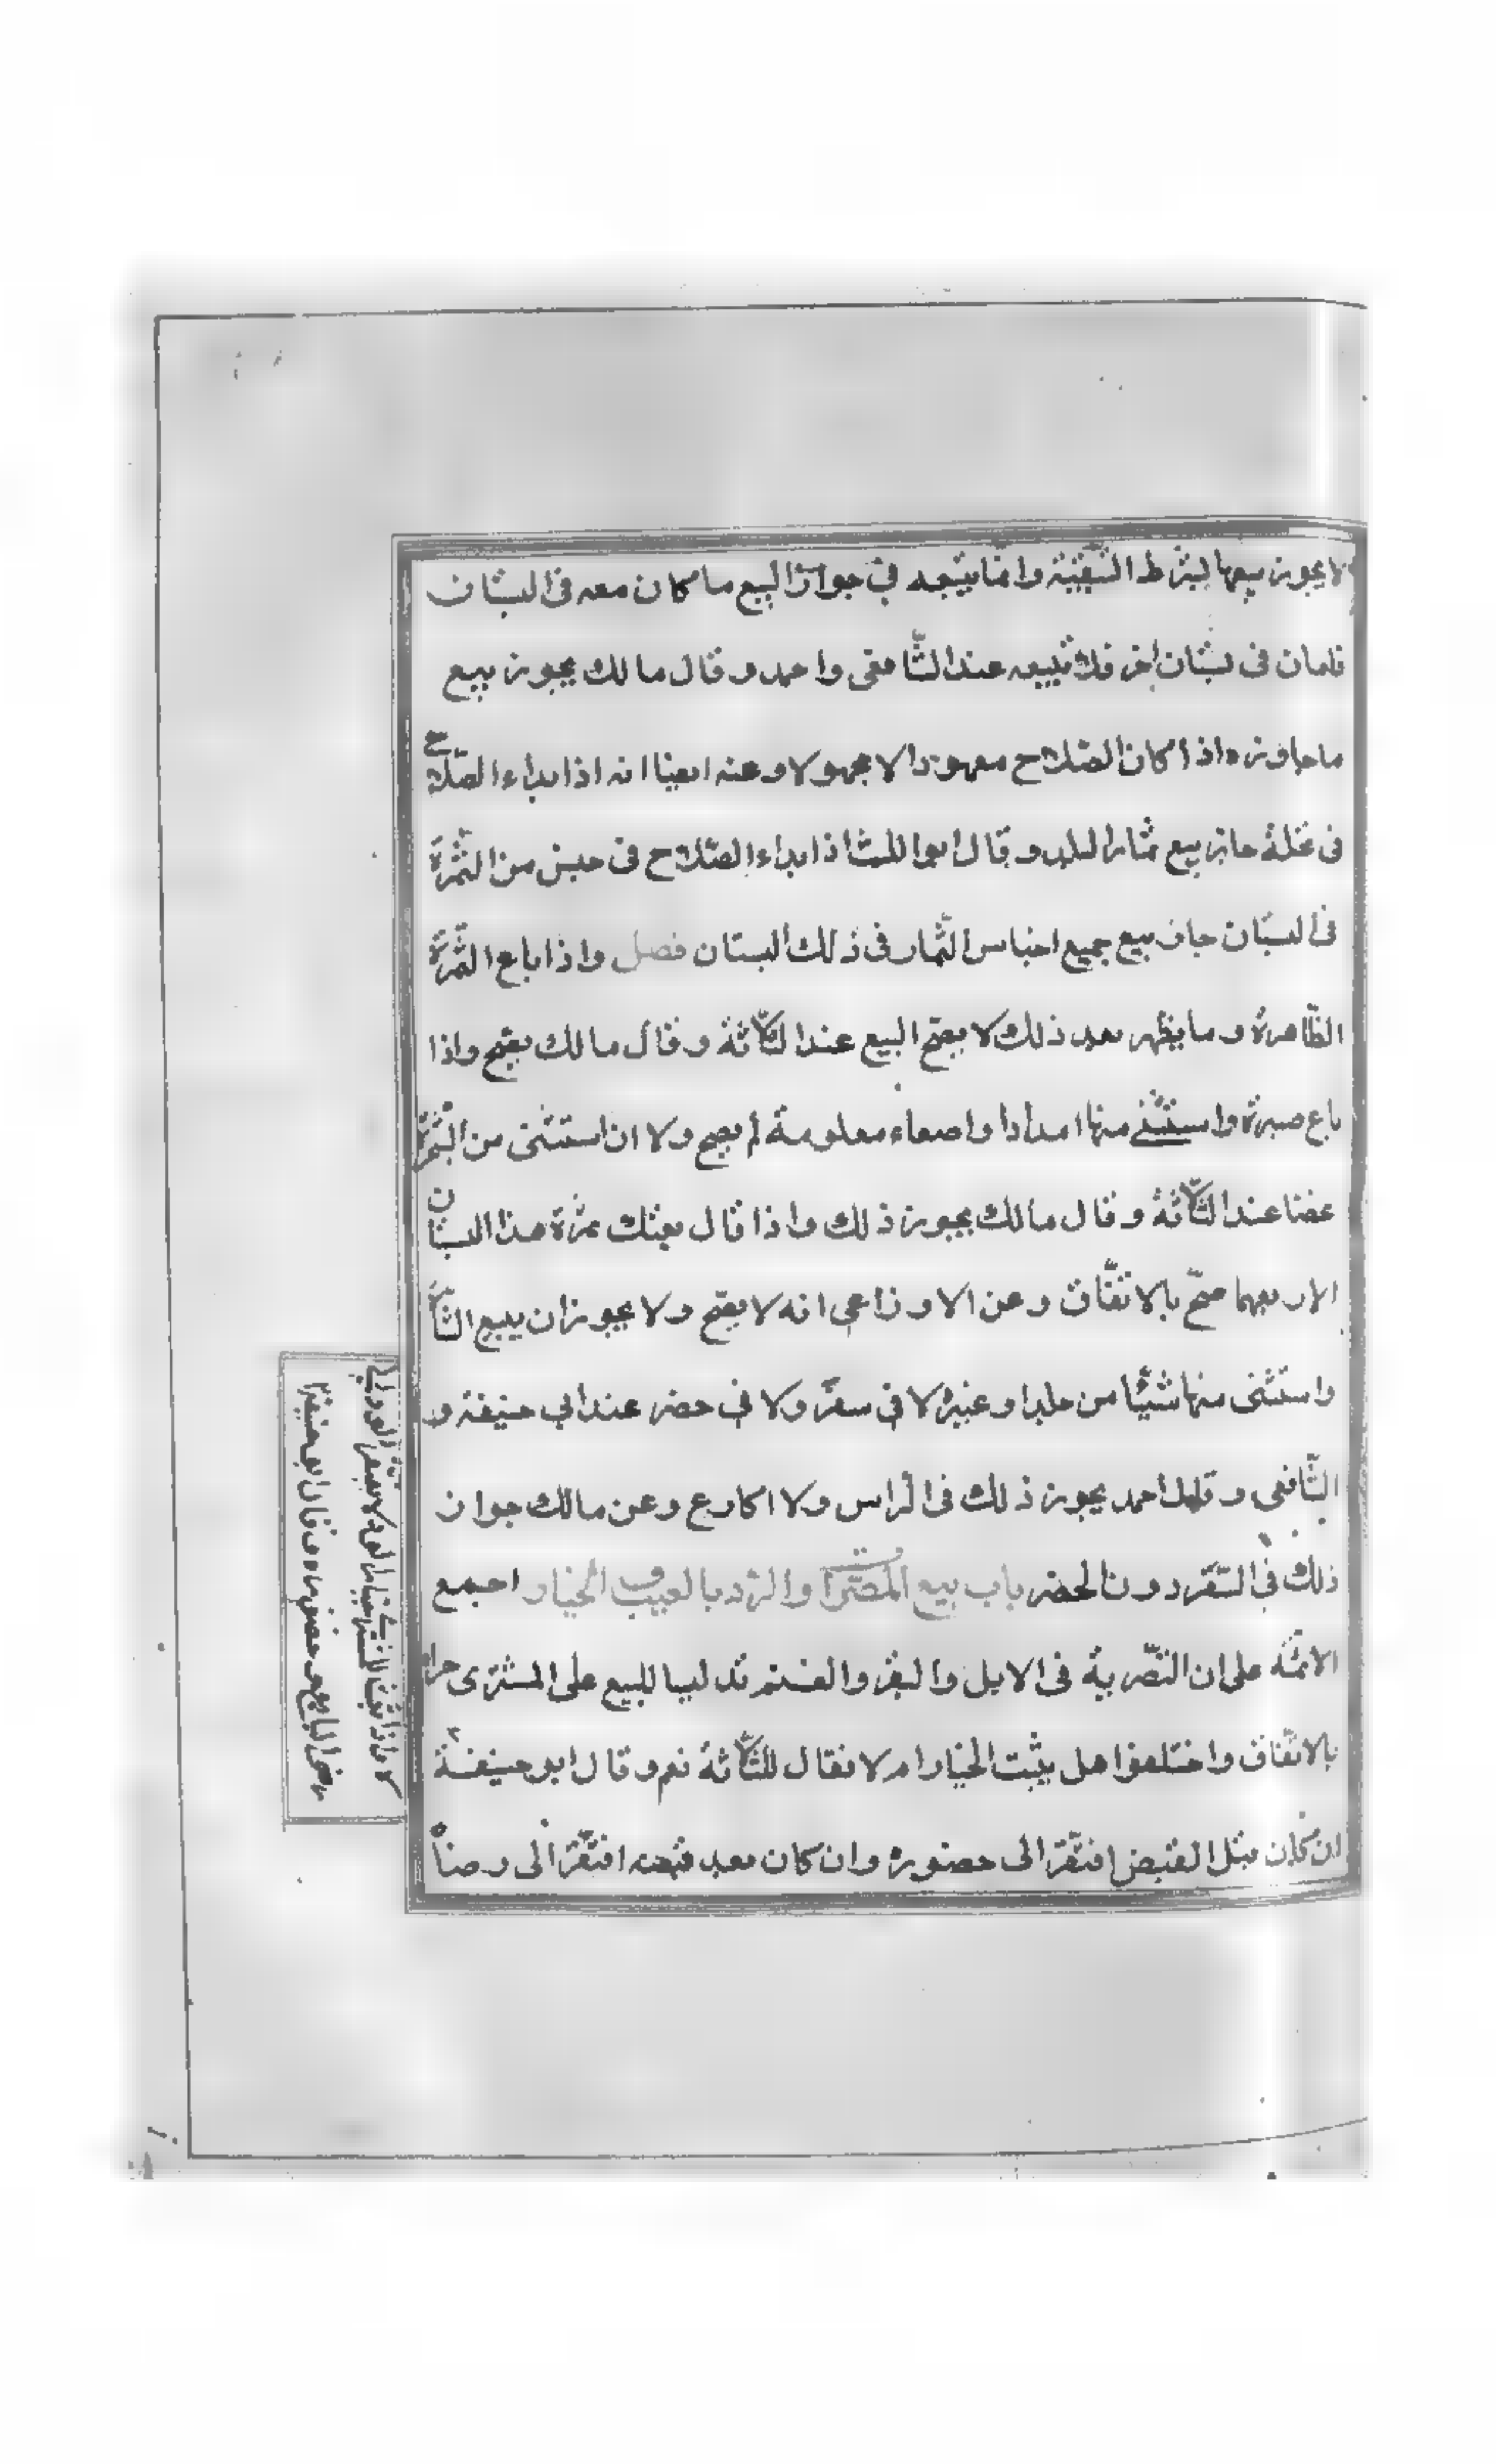 لا يجوز بيعها بشرط التبقية وانما يتبعه في جواز البيع ما كان معه في البستان
فلمان في بستان اخر فلا تبيعه عند الشافعى واحمد وقال مالك يجوز بيع
ما جاوزه اذا كان الصلاح معهودا لا مجهولا وعنه ايضا انه اذا ابداء الصلاح
فى نخلة جاز بيع ثمار البلد وقال ابو الليث اذا بداء الصلاح فى جنس من الثمرة
فى البستان جاز بيع جميع اجناس الثمار فى ذلك البستان فصل واذا باع الثمرة
الظاهرة وما يظهر بعد ذلك لا يصح البيع عند الثلاثة وقال مالك يصح واذا
باع صبرة واستثنى منها امدادا واصعاء معلومة لم يصح ولا ان استثنى من الثمرة
غصنا عند الثلاثة وقال مالك يجوز ذلك واذا قال بعتك ثمرة هذا البستان
الا ربعها صح بالاتفاق وعن الاوزاعى انه لا يصح ولا يجوز ان يبيع الشاة
واستثنى منها شيئا من جلد او غيره لا فى سفر ولا في حضر عند ابي حنيفة و
الشافعى وقال احمد يجوز ذلك فى الراس ولا اكارع وعن مالك جواز
ذلك في السفر دون الحضر باب بيع المصراة والرد بالعيب الخيار اجمع
الائمة على ان التصرية فى الابل والبقر والغنم تدليسا للبيع على المشترى حرام
بالاتفاق واختلفوا هل يثبت الخيار ام لا فقال الثلاثة نعم وقال ابو حنيفة
ان كان قبل القبض افتقر الى حضوره وان كان بعد قبضه افتقر الى رضاه